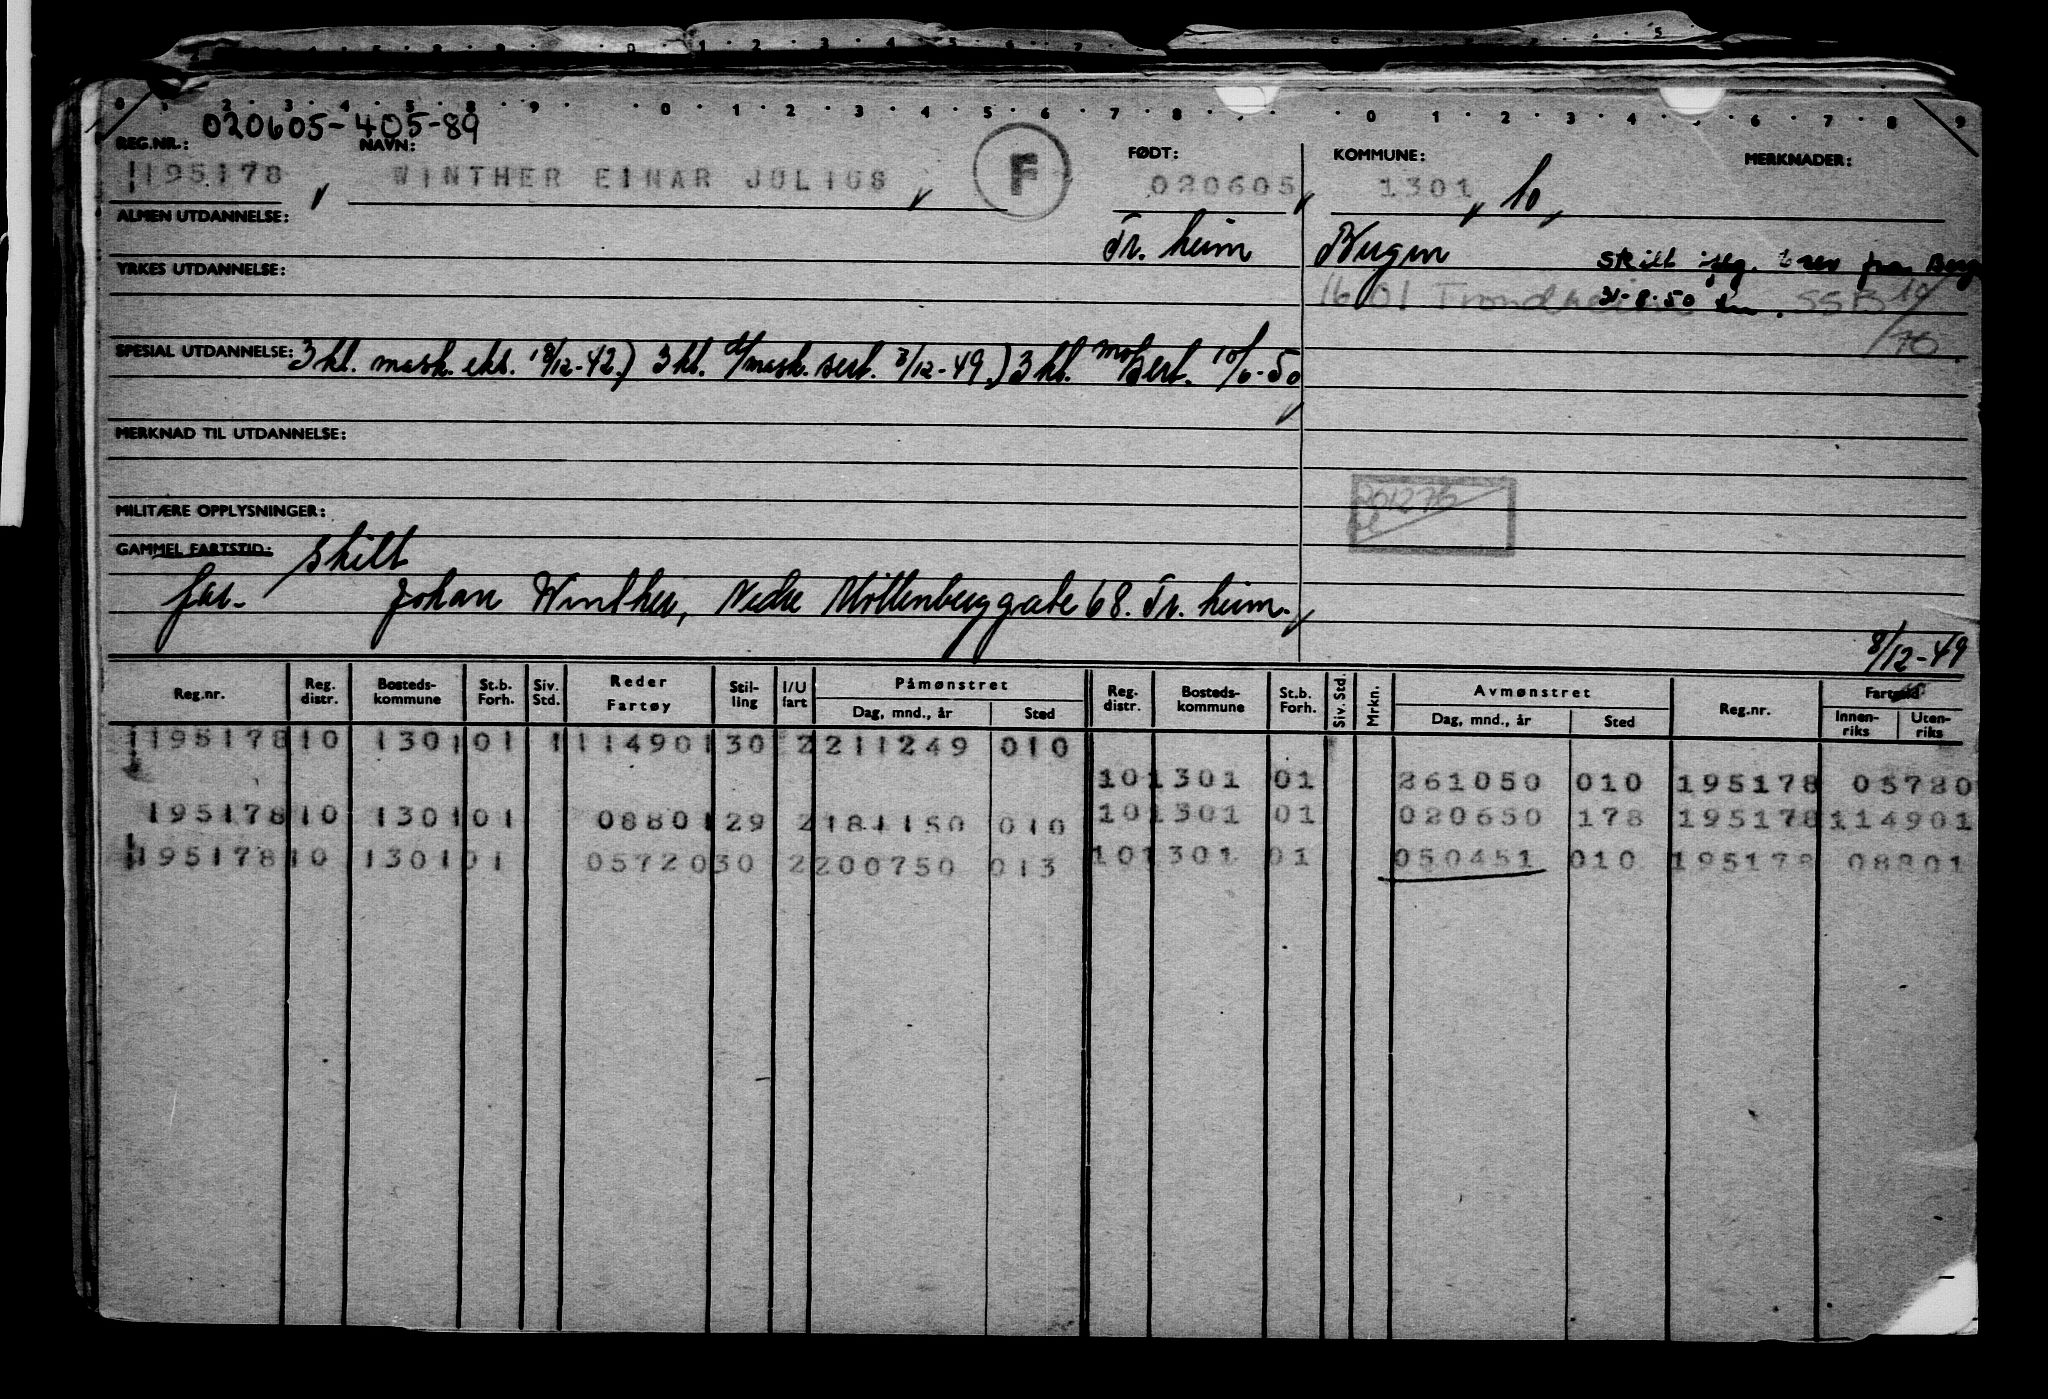 020605-405-89
REG.NR.: NAVN: FØDT: KOMMUNE: MERKNADER:
195178 WINTHER EINAR JULIUS F 020605 1301 10
ALMEN UTDANNELSE: Tr. heim Bergen
skilt iflg. brev fra Berg
YRKES UTDANNELSE:
1601 Trondheim 31-8-50 SSB 10/70
SPESIAL UTDANNELSE: 3 kl. mask. eks. 18/12-42.) 3 kl. d/mask. sert. 8/12-49.) 3 kl. mo sert. 10/6-50
MERKNAD TIL UTDANNELSE:
201276
MILITÆRE OPPLYSNINGER:
GAMMEL FARTSTID: skilt
far- Johan Winther, Nedre Möllenberggate 68. Tr. heim.
8/12-49
Reg.nr. Reg. distr. Bosteds-kommune St.b. Forh. Siv. Std. Reder Fartøy Stil-ling I/U fart Påmønstret Dag, mnd., år Sted Reg. distr. Bosteds-kommune St.b. Forh. Siv. Std. Mrkn. Avmønstret Dag, mnd., år Sted Reg.nr. Fartstid Innen-riks Uten-riks
195178 10 1301 01 1 114901 30 2 211249 010
10 1301 01 261050 010 195178 05720
195178 10 1301 01 08801 29 2 181150 010 10 1301 01 020650 178 195178 114901
195178 10 1301 01 05720 30 2 200750 013 10 1301 01 050451 010 195178 08801